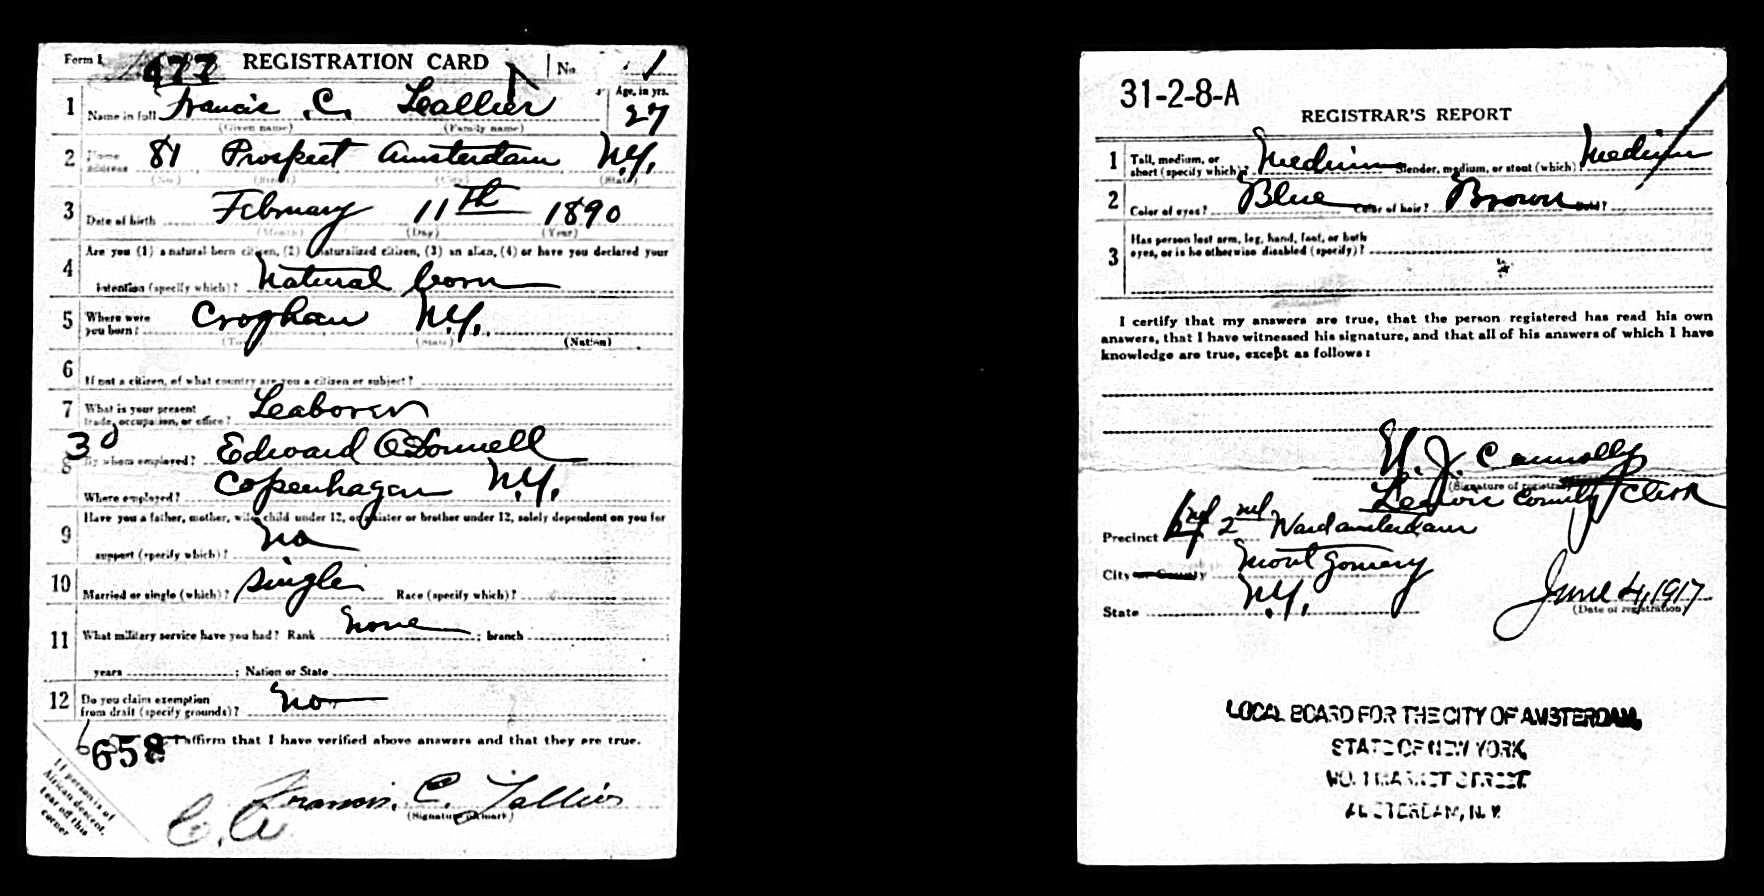 Form 1 477 REGISTRATION CARD No. 1
1 Name in full Francis C. Leallier Age, in yrs. 27
(Given name) (Family name)
2 Home address 81 Prospect Amsterdam N.Y.
(No.) (Street) (City) (State)
3 Date of birth February 11th 1890
(Month) (Day) (Year)
4 Are you (1) a natural-born citizen, (2) a naturalized citizen, (3) an alien, (4) or have you declared your
intention (specify which)? Natural born
5 Where were you born? Croghan N.Y.
(Town) (State) (Nation)
6 If not a citizen, of what country are you a citizen or subject?
7 What is your present trade, occupation, or office? Leaborer
30
8 By whom employed? Edward O'Donnell
Where employed? Copenhagen N.Y.
9 Have you a father, mother, wife, child under 12, or a sister or brother under 12, solely dependent on you for
support (specify which)? No
10 Married or single (which)? Single Race (specify which)?
11 What military service have you had? Rank None ; branch ;
years ; Nation or State
12 Do you claim exemption from draft (specify grounds)? No
658 I affirm that I have verified above answers and that they are true.
Francis. C. Lallier
(Signature or mark)
If person is of African descent, tear off this corner
31-2-8-A
REGISTRAR'S REPORT
1 Tall, medium, or short (specify which)? Medium Slender, medium, or stout (which)? Medium
2 Color of eyes? Blue Color of hair? Brown Bald?
3 Has person lost arm, leg, hand, foot, or both
eyes, or is he otherwise disabled (specify)?
I certify that my answers are true, that the person registered has read his own
answers, that I have witnessed his signature, and that all of his answers of which I have
knowledge are true, except as follows:
J. Connolly
(Signature of registrar)
Lewis County Clerk
Precinct 2nd Ward Amsterdam
City or County Montgomery
State N.Y.
June 4, 1917
(Date of registration)
LOCAL BOARD FOR THE CITY OF AMSTERDAM,
STATE OF NEW YORK,
NO. 1 MARKET STREET
AMSTERDAM, N.Y.